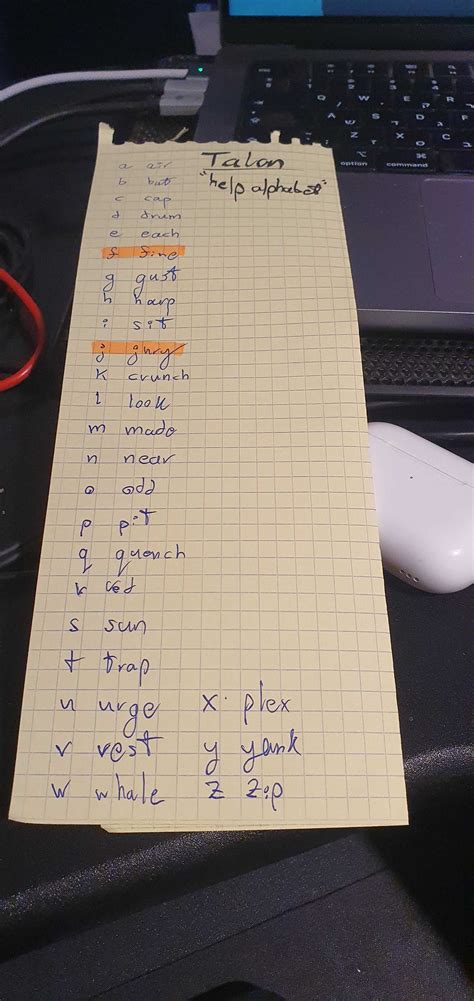 Talon
"help alphabet"
a air
b bat
c cap
d drum
e each
f fine
g gust
h harp
i sit
j jury
k crunch
l look
m made
n near
o odd
p pit
q quench
r red
s sun
t trap
u urge
v vest
w whale
x plex
y yank
z zip
Q
W
E
R
A
S
D
Z
X
C
option
command